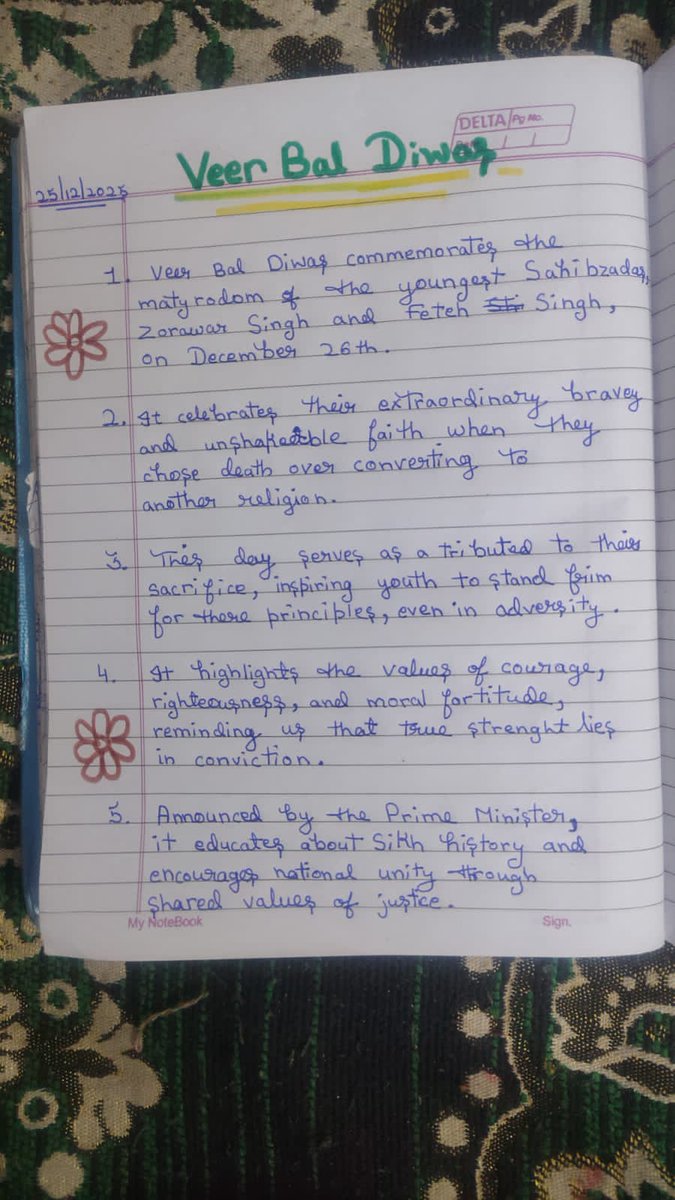 DELTA Pg No.
Veer Bal Diwas
25/12/2025
1. Veer Bal Diwas commemorates the
matyrodom of the youngest Sahibzadas,
Zorawar Singh and Feteh Singh,
on December 26th.
2. It celebrates their extraordinary bravey
and unshakeable faith when they
chose death over converting to
another religion.
3. This day serves as a tributed to their
sacrifice, inspiring youth to stand firm
for there principles, even in adversity.
4. It highlights the values of courage,
righteousness, and moral fortitude,
reminding us that true strenght lies
in conviction.
5. Announced by the Prime Minister,
it educates about Sikh history and
encourages national unity through
shared values of justice.
My NoteBook Sign.